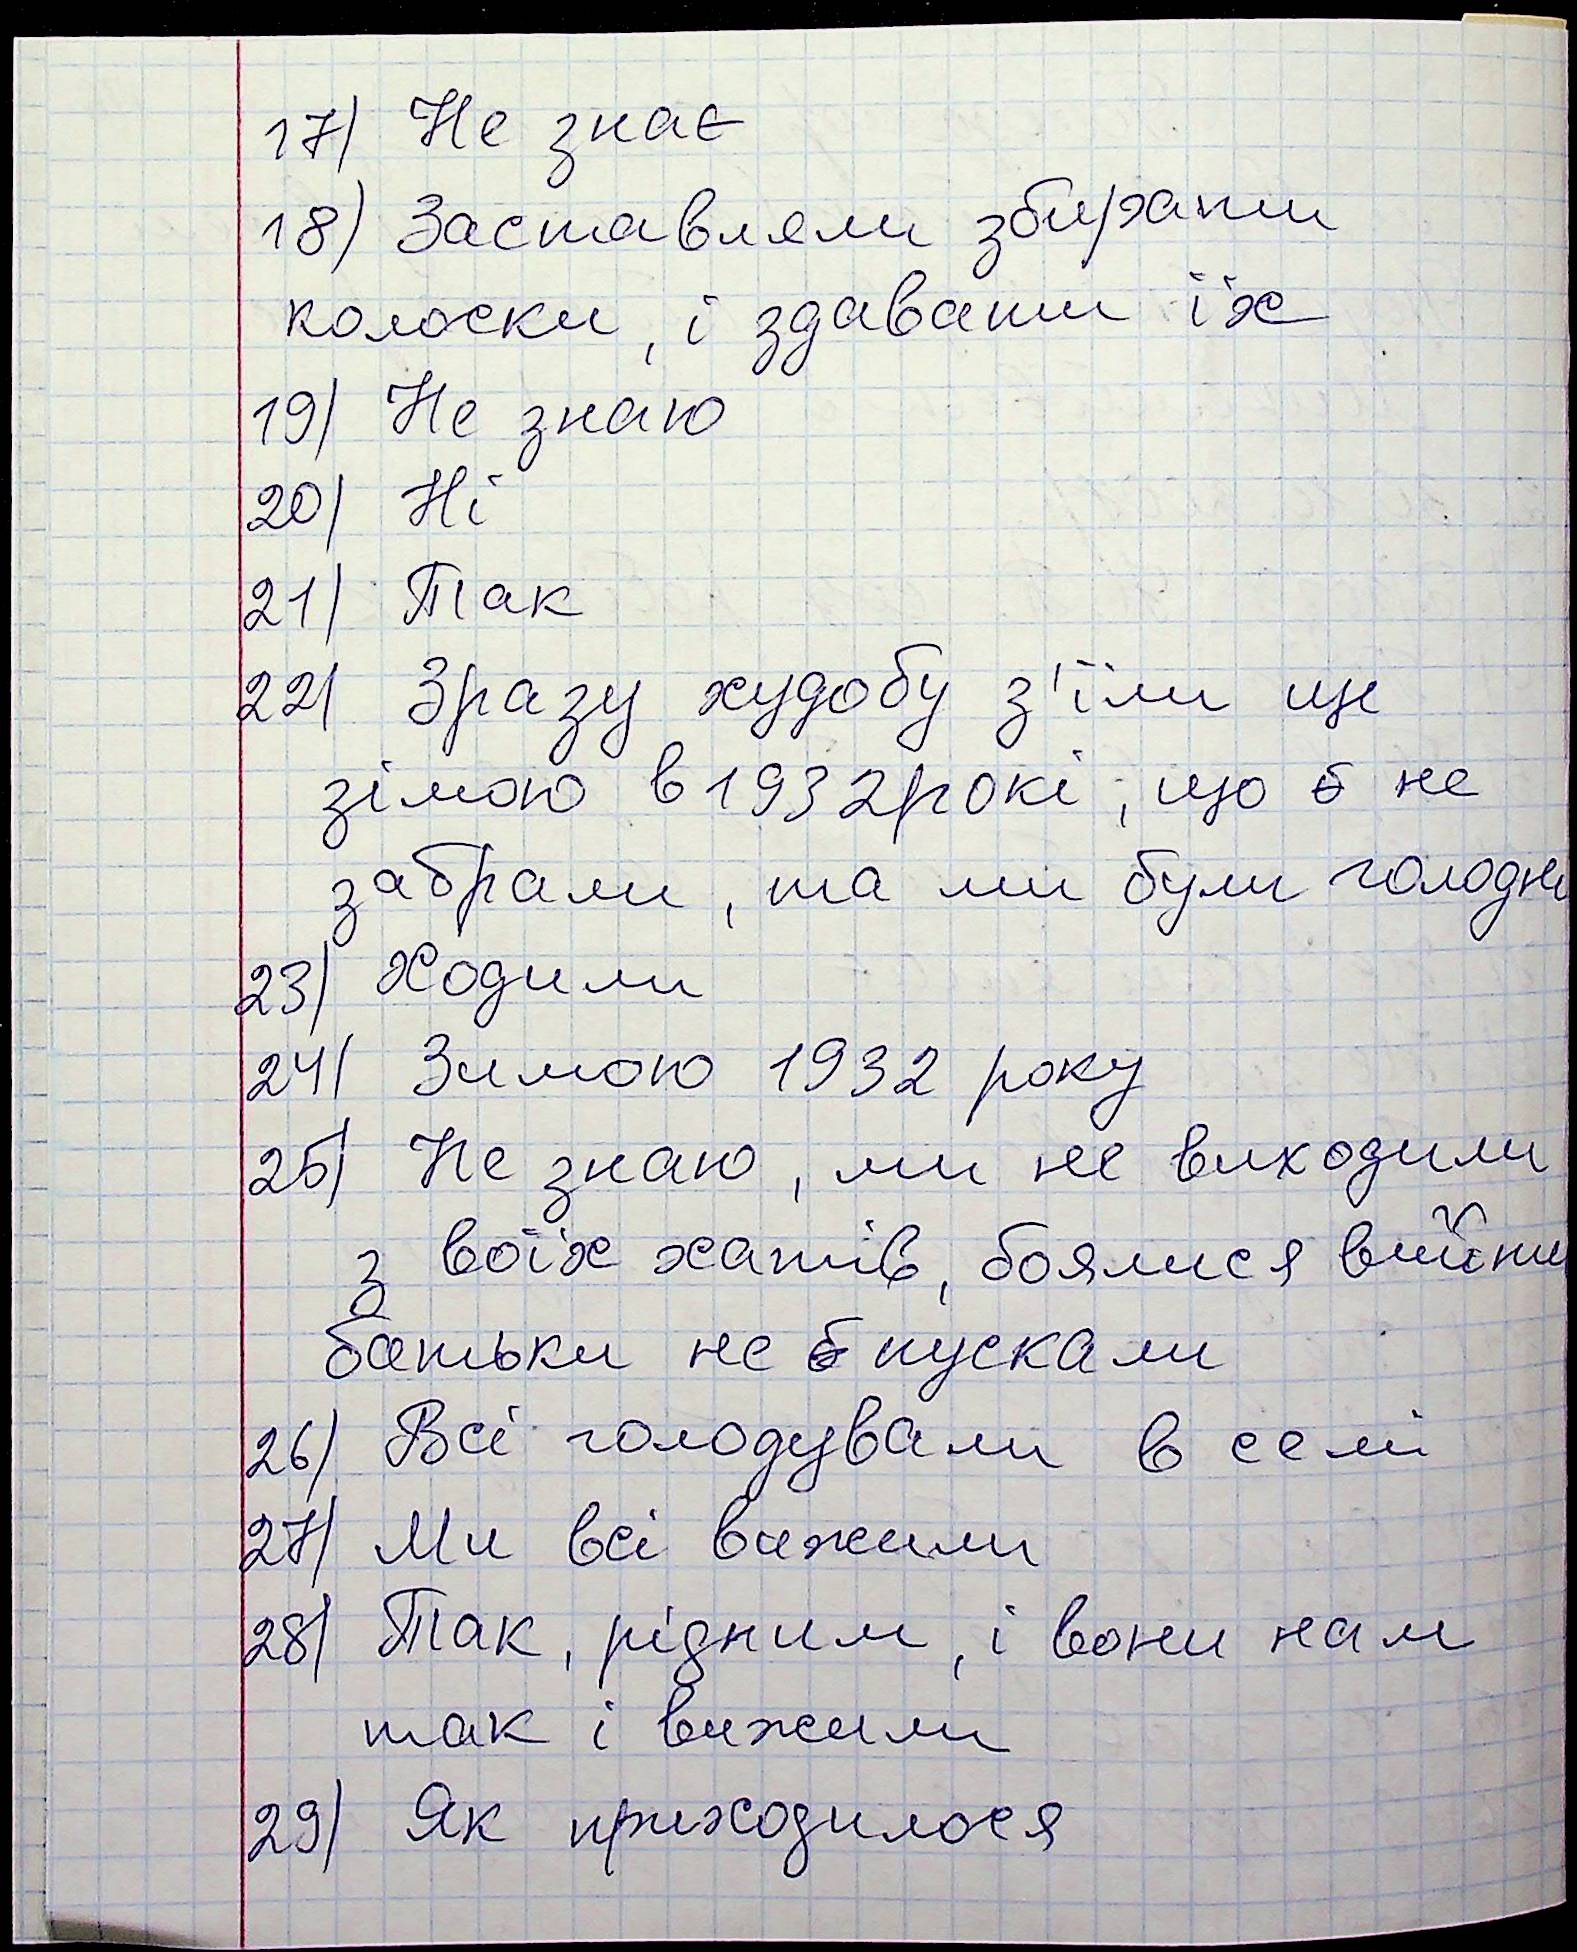 17) Не знає
18) Заставляли збирати
колоски, і здавати їх
19) Не знаю
20) Ні
21) Так
22) Зразу худобу з'їли ще
зімою в 1932 рокі, що б не
забрали, та ми були голодні
23) Ходили
24) Зимою 1932 року
25) Не знаю, ми не виходили
з воїх хатів, боялися вийти
батьки не пускали
26) Всі голодували в семї
27) Ми всі вижили
28) Так, рідним, і вони нам
так і вижили
29) Як приходилося